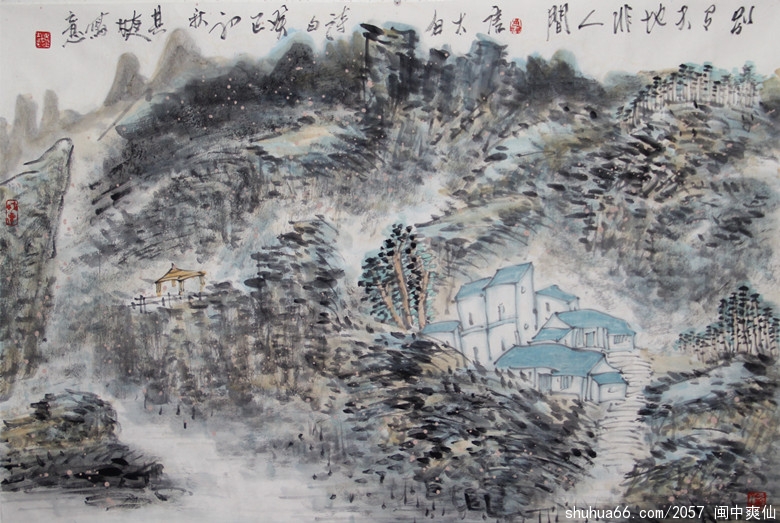 别有天地非人間 唐太白詩句 癸巳初秋其 意
shuhua66.com/2057 闽中爽仙